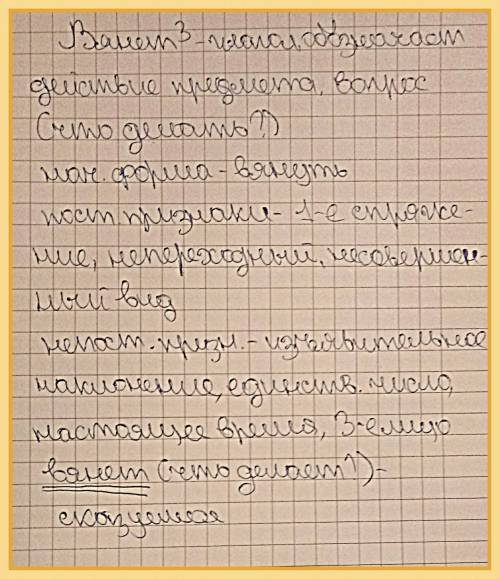 Вянет³ - глагол, обозначает
действие предмета, вопрос
(что делать?)
нач. форма - вянуть
пост. признаки - 1-е спряже-
ние, непереходный, несовершен-
ный вид
непост. призн. - изъявительное
наклонение, единств. число,
настоящее время, 3-е лицо
вянет (что делает?) -
сказуемое